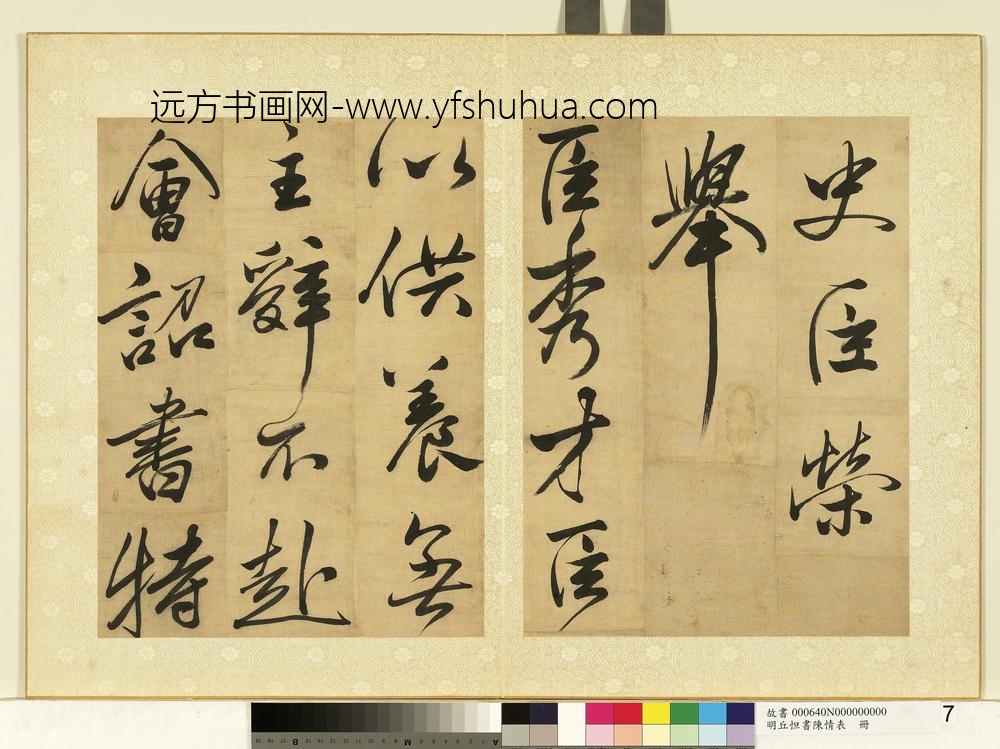 远方书画网-www.yfshuhua.com
史臣榮
舉
臣秀才臣
以供養無
主辭不赴
會詔書特
故書 000640N000000000
明丘怛書陳情表 冊
7